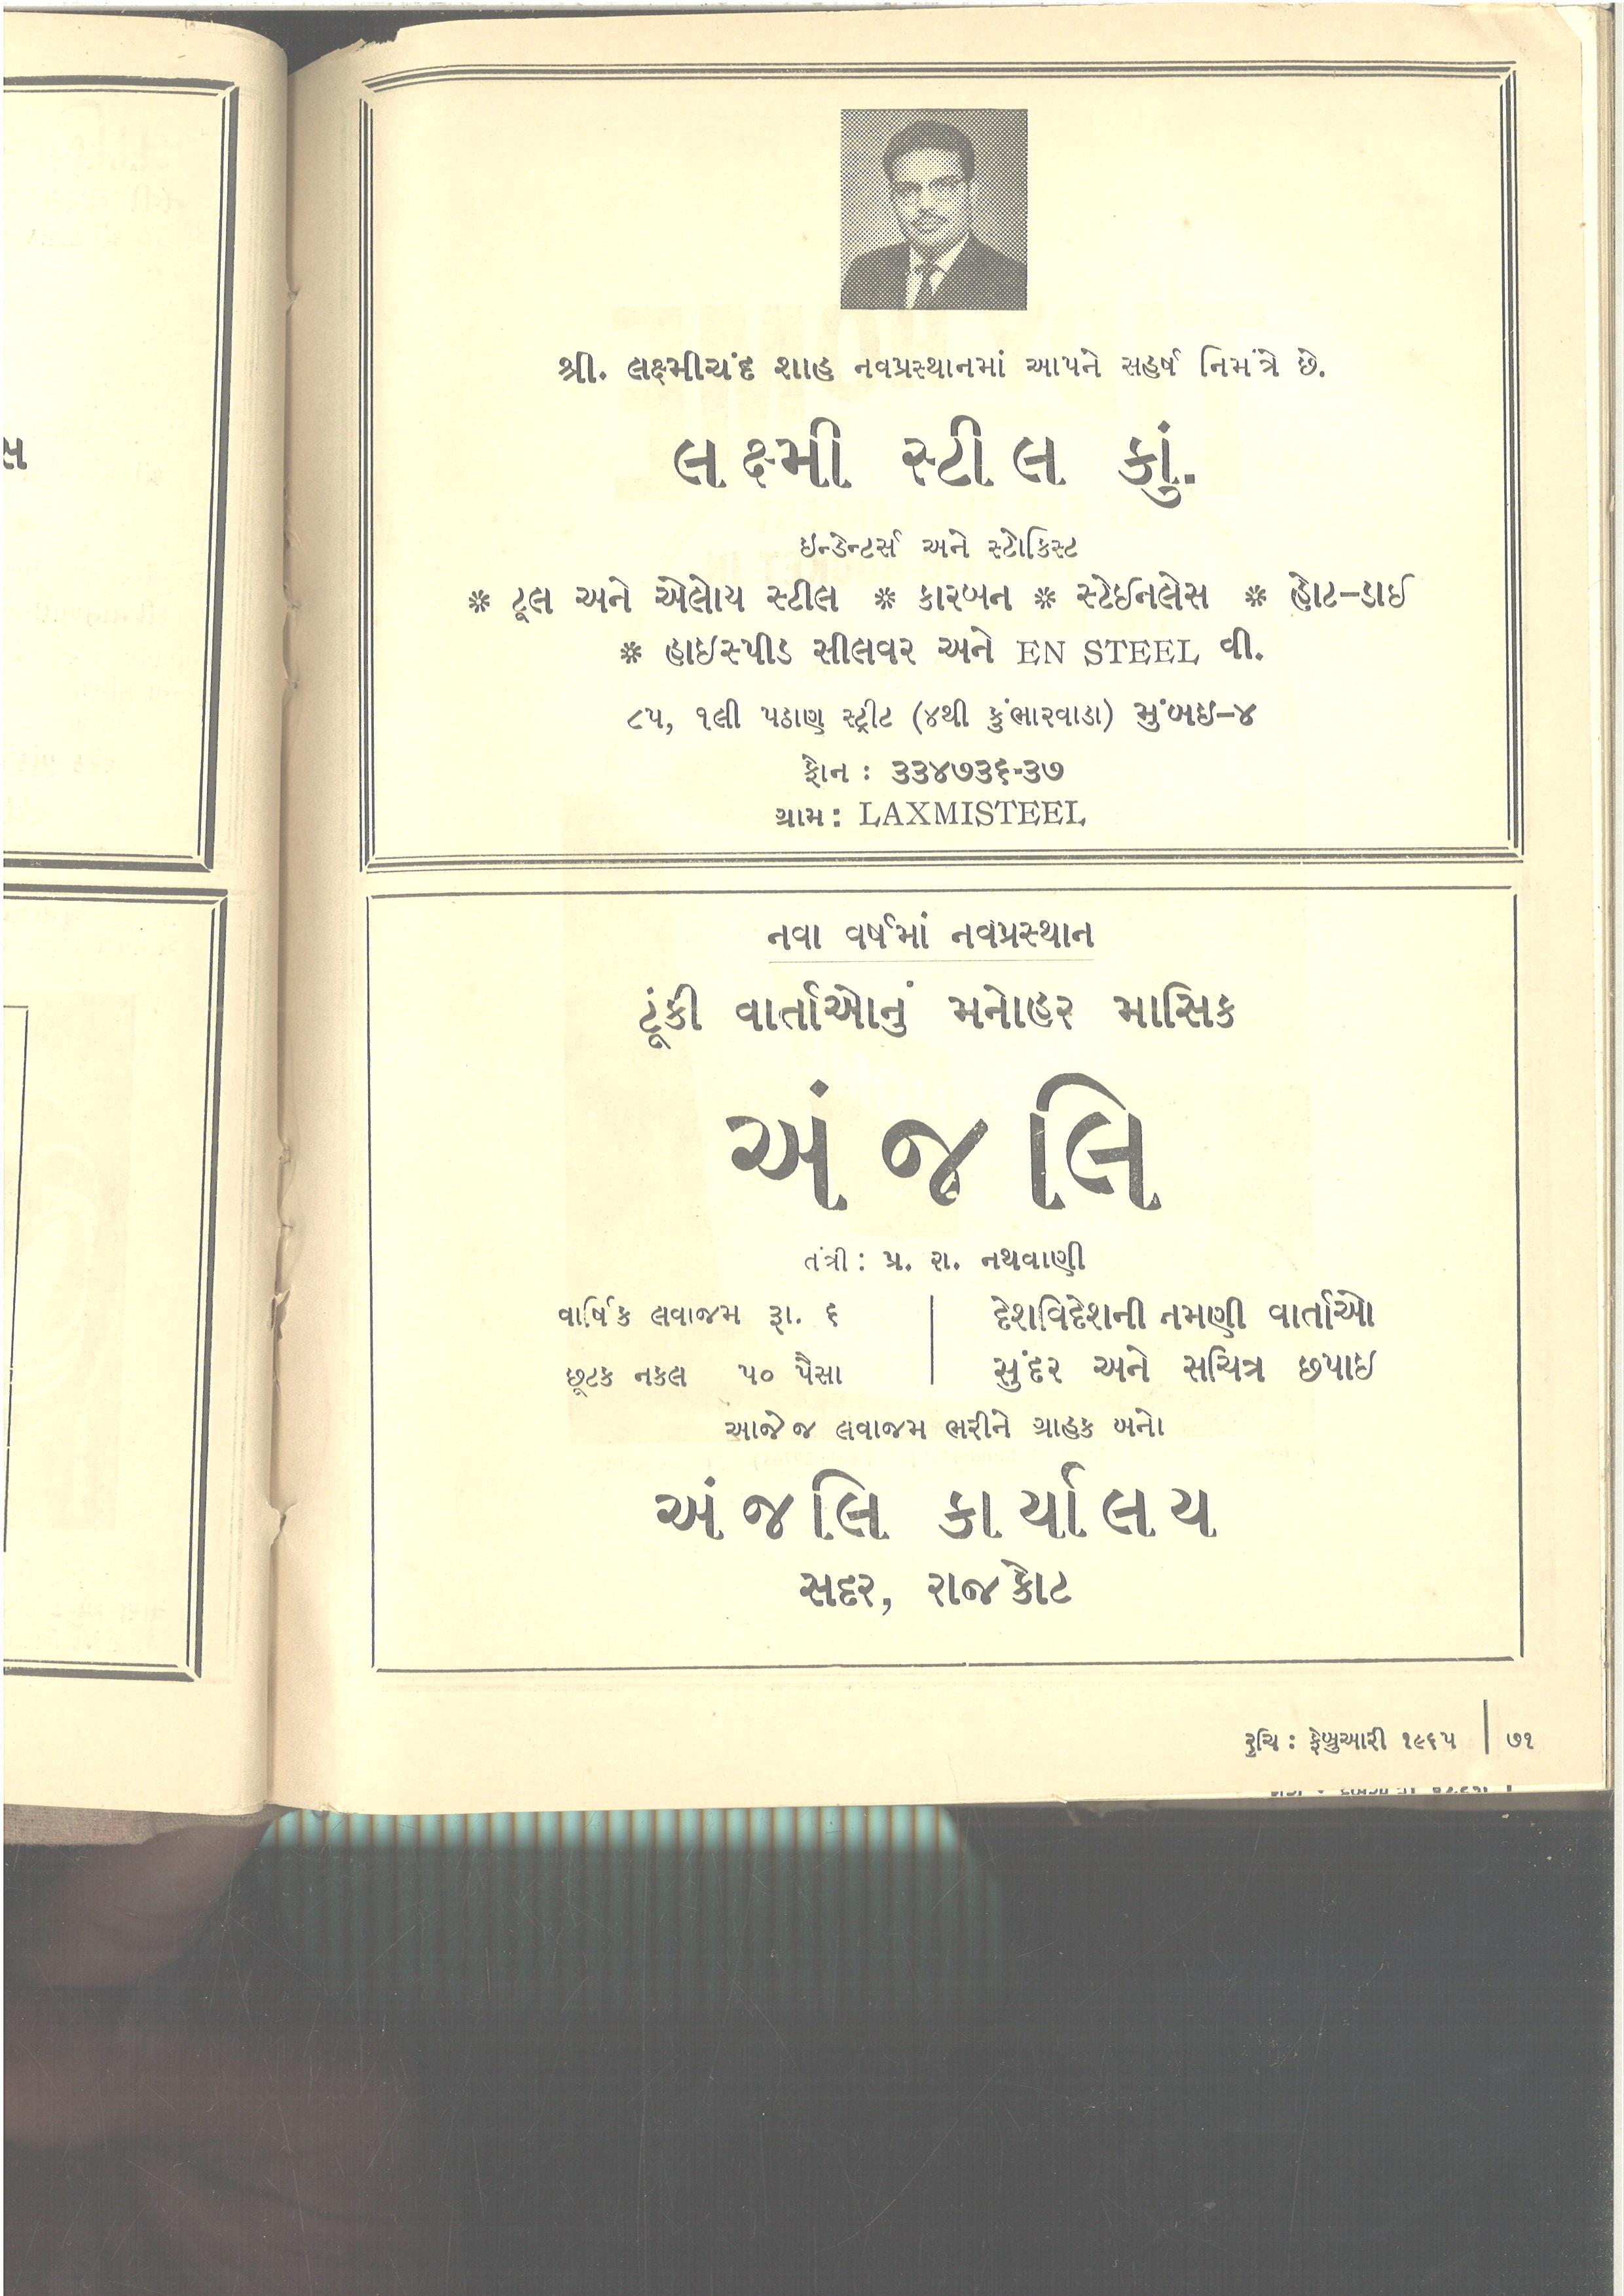 શ્રી. લક્ષ્મીચંદ શાહ નવપ્રસ્થાનમાં આપને સહર્ષ નિમંત્રે છે.
લક્ષ્મી સ્ટીલ કું.
ઇન્ડેન્ટર્સ અને સ્ટોકિસ્ટ
* ટૂલ અને એલોય સ્ટીલ * કારબન * સ્ટેઈનલેસ * હોટ-ડાઈ
* હાઇસ્પીડ સીલવર અને EN STEEL વી.
૮૫, ૧લી પઠાણ સ્ટ્રીટ (૪થી કુંભારવાડા) મુંબઇ-૪
ફોન : ૩૩૪૭૩૬-૩૭
ગ્રામ : LAXMISTEEL
નવા વર્ષમાં નવપ્રસ્થાન
ટૂંકી વાર્તાઓનું મનોહર માસિક
અંજલિ
તંત્રી : પ્ર. રા. નથવાણી
વાર્ષિક લવાજમ રૂા. ૬
છૂટક નકલ ૫૦ પૈસા
દેશવિદેશની નમણી વાર્તાઓ
સુંદર અને સચિત્ર છપાઇ
આજે જ લવાજમ ભરીને ગ્રાહક બનો
અંજલિ કાર્યાલય
સદર, રાજકોટ
રુચિ : ફેબ્રુઆરી ૧૯૬૫ | ૭૧